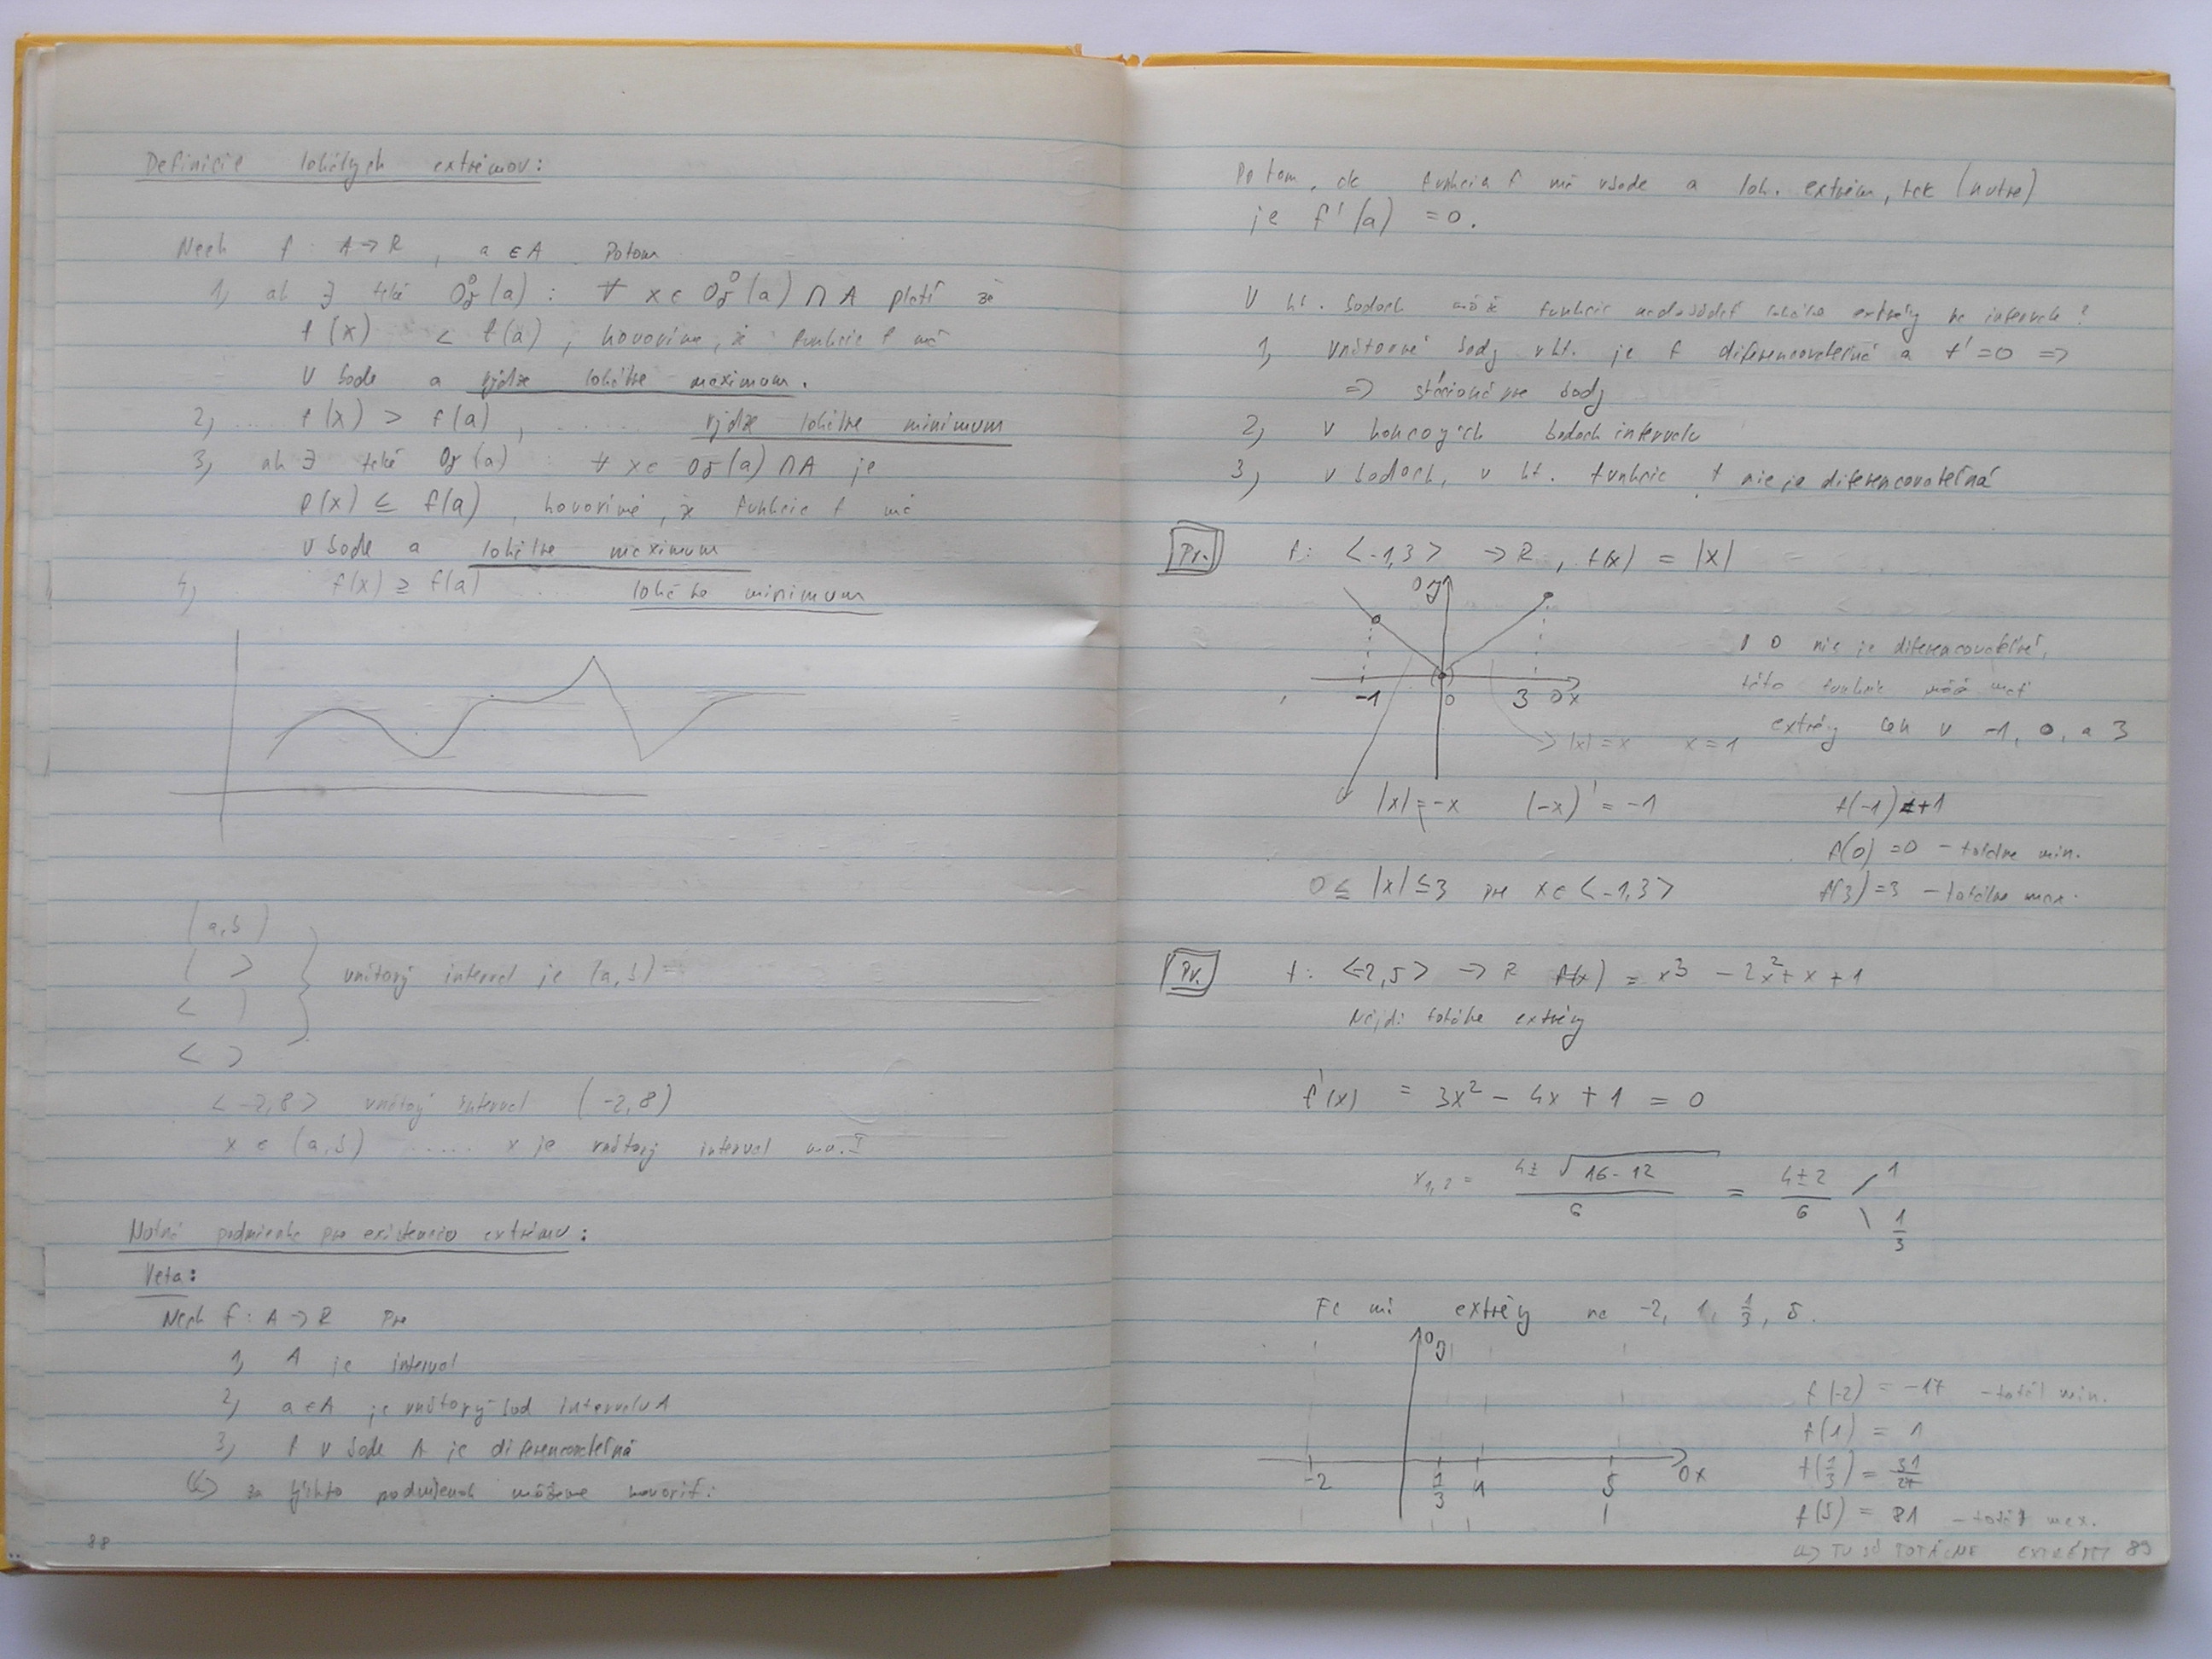 Definície lokálnych extrémov:
Nech f: A → R, a ∈ A. Potom
1, ak ∃ také O°δ(a): ∀ x ∈ O°δ(a) ∩ A platí že
f(x) < f(a), hovoríme, že funkcia f má
v bode a rýdze lokálne maximum.
2, .... f(x) > f(a), ...... rýdze lokálne minimum
3, ak ∃ také Oδ(a): ∀ x ∈ Oδ(a) ∩ A je
f(x) ≤ f(a), hovoríme, že funkcia f má
v bode a lokálne maximum
4, f(x) ≥ f(a) ... lokálne minimum
(a,b)
( >
< )
< >
} vnútorný interval je (a,b)
<-2,8> vnútorný interval (-2,8)
x ∈ (a,b) ..... x je vnútorný interval
Nutná podmienka pre existenciu extrému:
Veta:
Nech f: A → R Pre
1, A je interval
2, a ∈ A je vnútorný bod intervalu A
3, f v bode A je diferencovateľná
za týchto podmienok môžeme hovoriť:
88
Potom, ak funkcia f má v bode a lok. extrém, tak (nutne)
je f'(a) = 0.
V kt. bodoch môže funkcia nadobúdať lokálne extrémy na intervale?
1, vnútorné body v kt. je f diferencovateľná a f' = 0 =>
=> stacionárne body
2, v koncových bodoch intervalu
3, v bodoch, v kt. funkcia f nie je diferencovateľná
Pr. f: <-1,3> → R, f(x) = |x|
oy
-1 0 3 ox
V 0 nie je diferencovateľná,
táto funkcia môže mať
extrémy len v -1, 0, a 3
|x| = x x = 1
|x| = -x (-x)' = -1
f(-1) = +1
f(0) = 0 - totálne min.
0 ≤ |x| ≤ 3 pre x ∈ <-1,3>
f(3) = 3 - totálne max.
Pr. f: <-2,5> → R f(x) = x³ - 2x² + x + 1
Nájdi totálne extrémy
f'(x) = 3x² - 4x + 1 = 0
x1,2 = (4 ± √16-12)/6 = (4±2)/6 1
1/3
Fc má extrémy na -2, 1, 1/3, 5.
oy
-2 1/3 1 5 ox
f(-2) = -17 - totál min.
f(1) = 1
f(1/3) = 31/27
f(5) = 81 - totál max.
TU SÚ TOTÁLNE EXTRÉMY
89